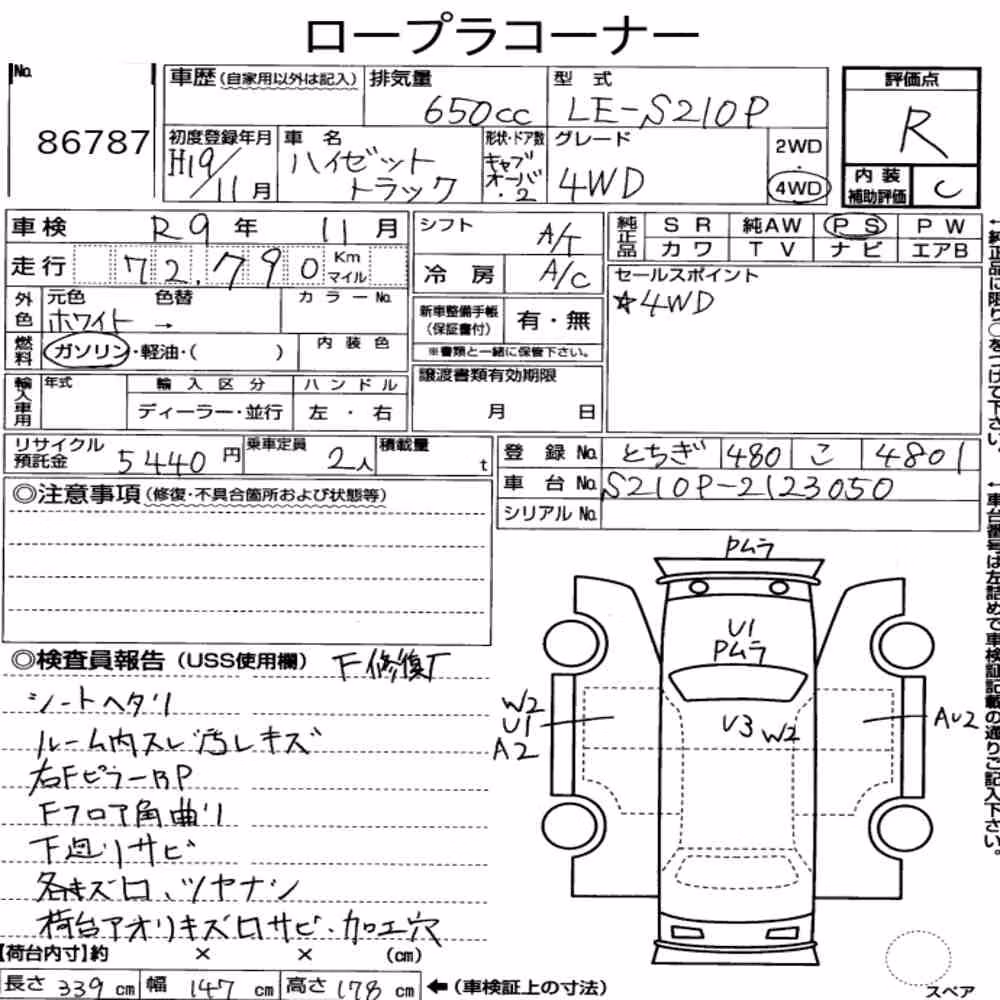 ロープラコーナー
No.
86787
車歴(自家用以外は記入)
排気量
650cc
型式
LE-S210P
評価点
R
内装補助評価
C
初度登録年月
H19/11月
車名
ハイゼットトラック
形状・ドア数
キャブオーバ・2
グレード
4WD
2WD
・
4WD
車検 R9年 11月
走行 72,790 Km マイル
シフト A/T
冷房 A/C
純正品
SR 純AW PS PW
カワ TV ナビ エアB
セールスポイント
☆4WD
外色 元色 色替 カラーNo.
ホワイト →
燃料 ガソリン・軽油・( )
内装色
新車整備手帳(保証書付) 有・無
※書類と一緒に保管下さい。
譲渡書類有効期限
月 日
輸入車用 年式 輸入区分 ハンドル
ディーラー・並行 左・右
リサイクル預託金 5440円
乗車定員 2人
積載量 t
登録No. とちぎ 480 こ 4801
車台No. S210P-2123050
シリアルNo.
←純正品に限り○をつけて下さい。
←車台番号は左詰めで車検証記載の通りご記入下さい。
◎注意事項(修復・不具合箇所および状態等)
◎検査員報告(USS使用欄) F修復T
シートヘタリ
ルーム内スレ汚レキズ
右FピラーBP
Fフロア角曲リ
下廻リサビ
各キズロ、ツヤナシ
荷台アオリキズロサビ・加工穴
Pムラ
U1
Pムラ
U3 W2
W2
U1
A2
AU2
【荷台内寸】約 × × (cm)
長さ 339 cm 幅 147 cm 高さ 178 cm ←(車検証上の寸法)
スペア